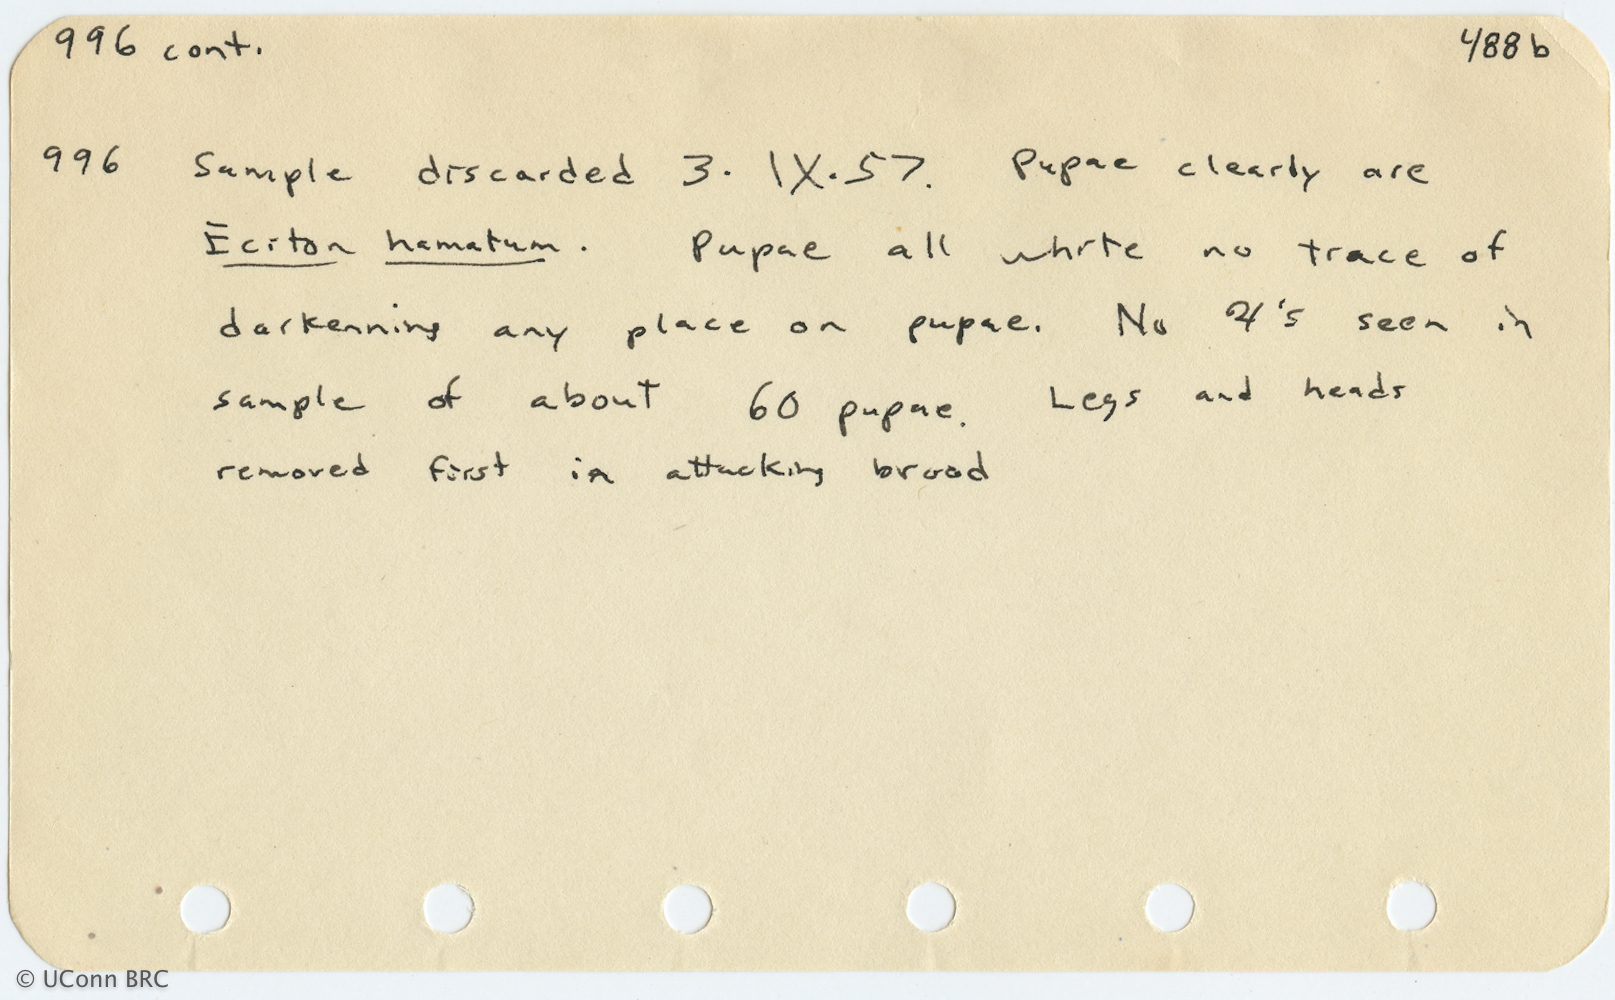 996 cont. 488b
996 Sample discarded 3. IX.57. Pupae clearly are
Eciton hamatum. Pupae all white no trace of
darkenning any place on pupae. No 's seen in
sample of about 60 pupae. Legs and heads
removed first in attacking brood
© UConn BRC